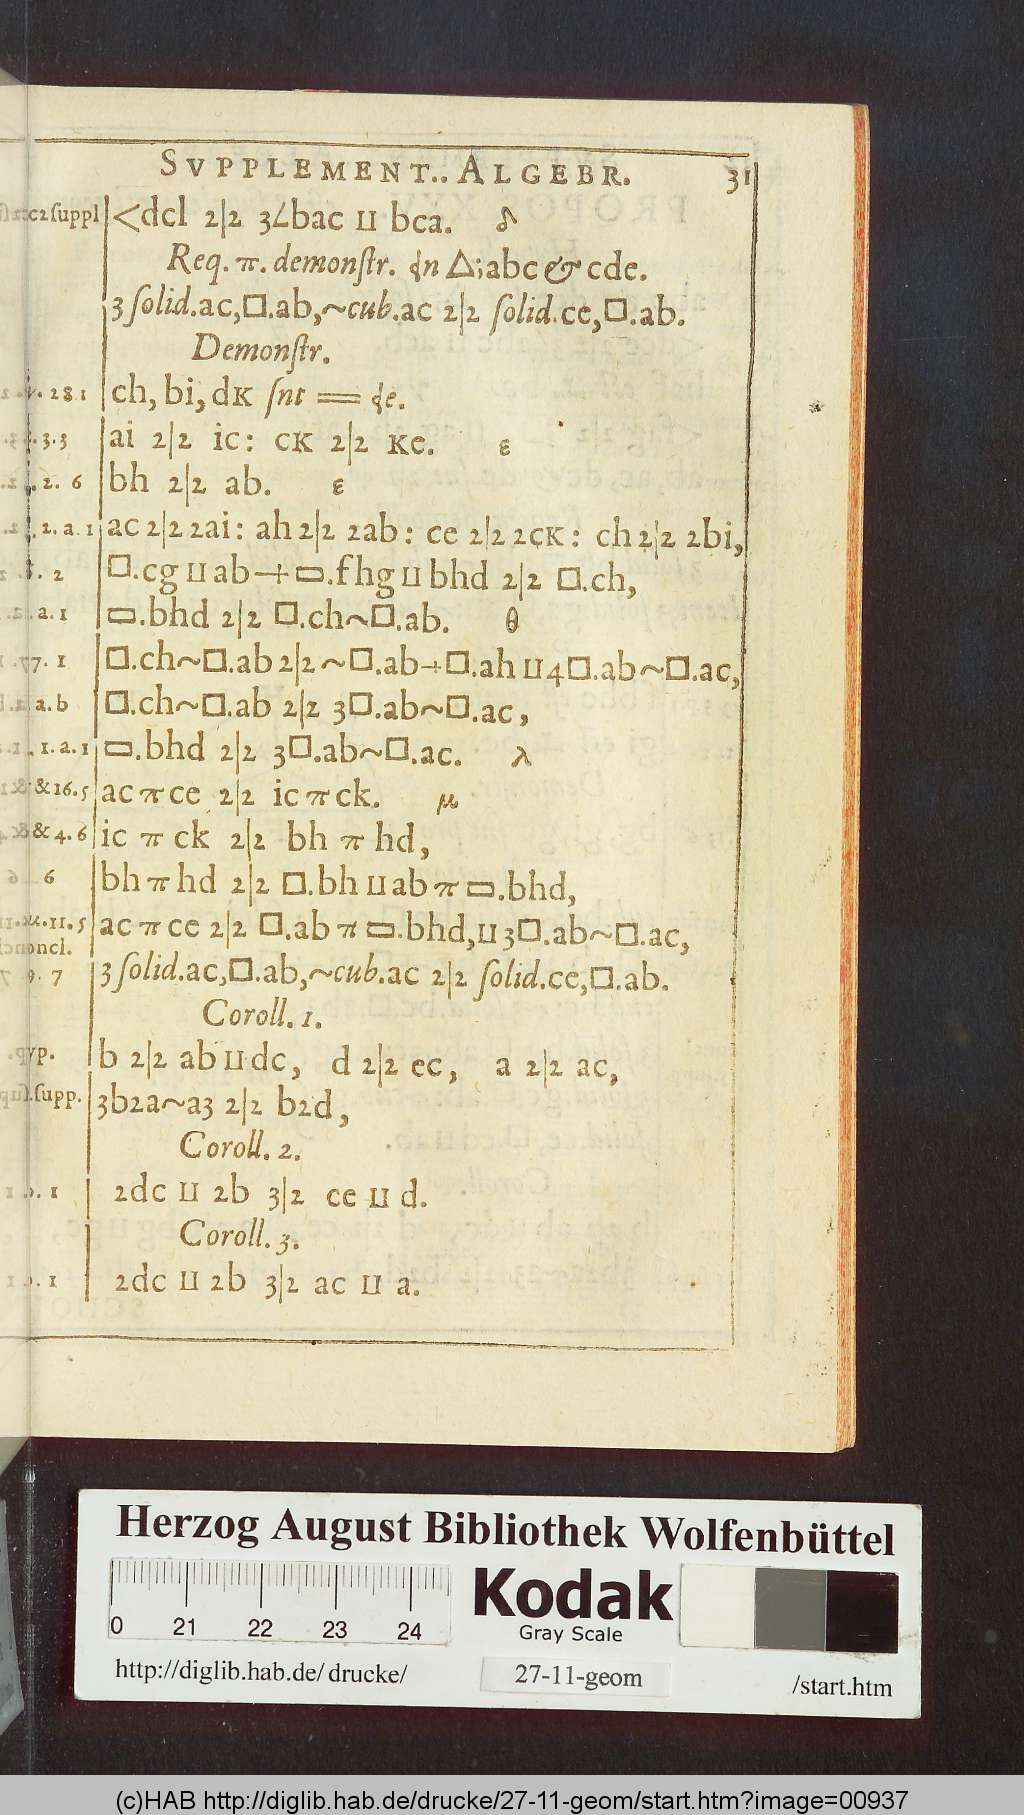 SVPPLEMENT.. ALGEBR. 31
c2 ſuppl <dcl 2|2 3∠bac ⊔ bca.
Req. π. demonſtr. △; abc & cde.
3 ſolid.ac,□.ab,~cub.ac 2|2 ſolid.ce,□.ab.
Demonſtr.
28 1 ch, bi, dK ſnt ==
3.3 ai 2|2 ic: cK 2|2 Ke. ε
2. 6 bh 2|2 ab. ε
2.a.1 ac 2|2 2ai: ah 2|2 2ab: ce 2|2 2cK: ch 2|2 2bi,
2 □.cg ⊔ ab + ▭.fhg ⊔ bhd 2|2 □.ch,
a.1 ▭.bhd 2|2 □.ch~□.ab. θ
77. 1 □.ch~□.ab 2|2 ~□.ab+□.ah ⊔ 4□.ab~□.ac,
a.b □.ch~□.ab 2|2 3□.ab~□.ac,
1.a.1 ▭.bhd 2|2 3□.ab~□.ac. λ
& 16.5 ac π ce 2|2 ic π ck. μ
& 4.6 ic π ck 2|2 bh π hd,
6 bh π hd 2|2 □.bh ⊔ ab π ▭.bhd,
11.5 ac π ce 2|2 □.ab π ▭.bhd, ⊔ 3□.ab~□.ac,
concl.
9. 7 3 ſolid.ac,□.ab,~cub.ac 2|2 ſolid.ce,□.ab.
Coroll. 1.
hyp. b 2|2 ab ⊔ dc, d 2|2 ec, a 2|2 ac,
ſupp. 3b2a~a3 2|2 b2d,
Coroll. 2.
1 2dc ⊔ 2b 3|2 ce ⊔ d.
Coroll. 3.
1 2dc ⊔ 2b 3|2 ac ⊔ a.
Herzog August Bibliothek Wolfenbüttel
0 21 22 23 24
Kodak
Gray Scale
http://diglib.hab.de/drucke/ 27-11-geom /start.htm
(c)HAB http://diglib.hab.de/drucke/27-11-geom/start.htm?image=00937